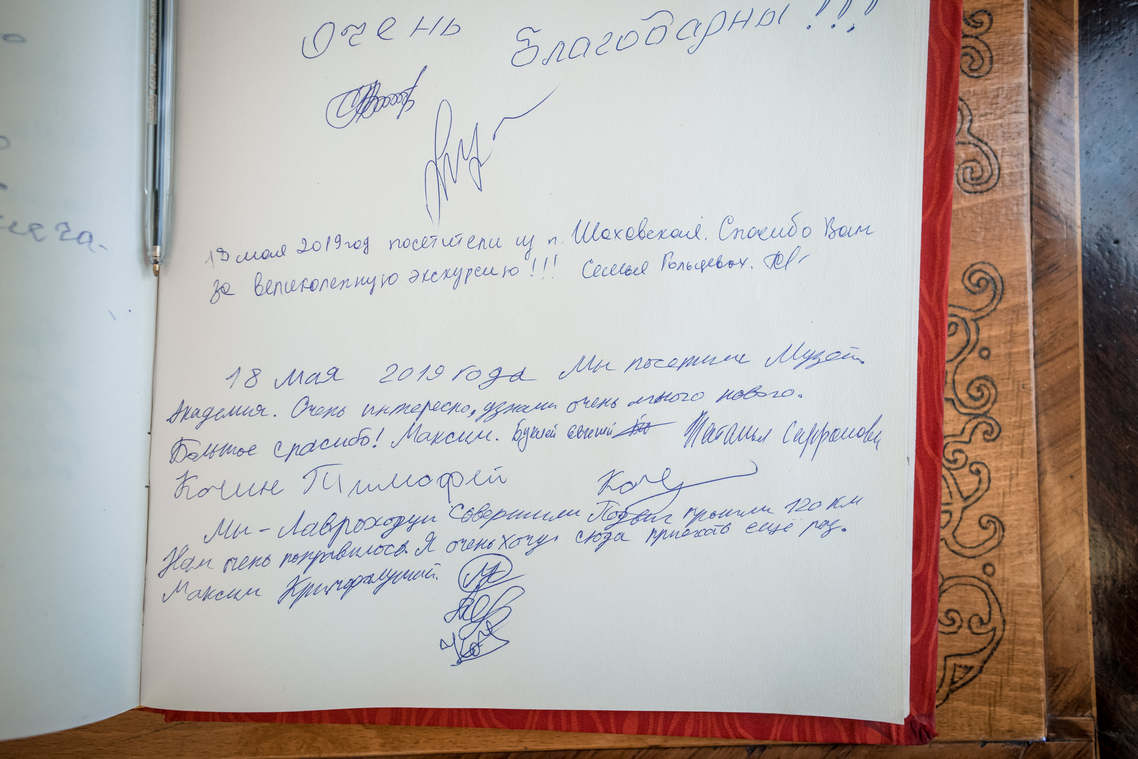 Очень Благодарны!!!
19 мая 2019 год посетители из п. Шаховская. Спасибо Вам
за великолепную экскурсию!!! Семья
18 мая 2019 года Мы посетили Музей
Академия. Очень интересно, узнали очень много нового.
Большое спасибо! Максим. Наталья Сафронова
Кочин Тимофей
Мы - Лавроходцы совершили Подвиг прошли 120 км
Нам очень понравилось. Я очень хочу сюда приехать ещё раз.
Максим